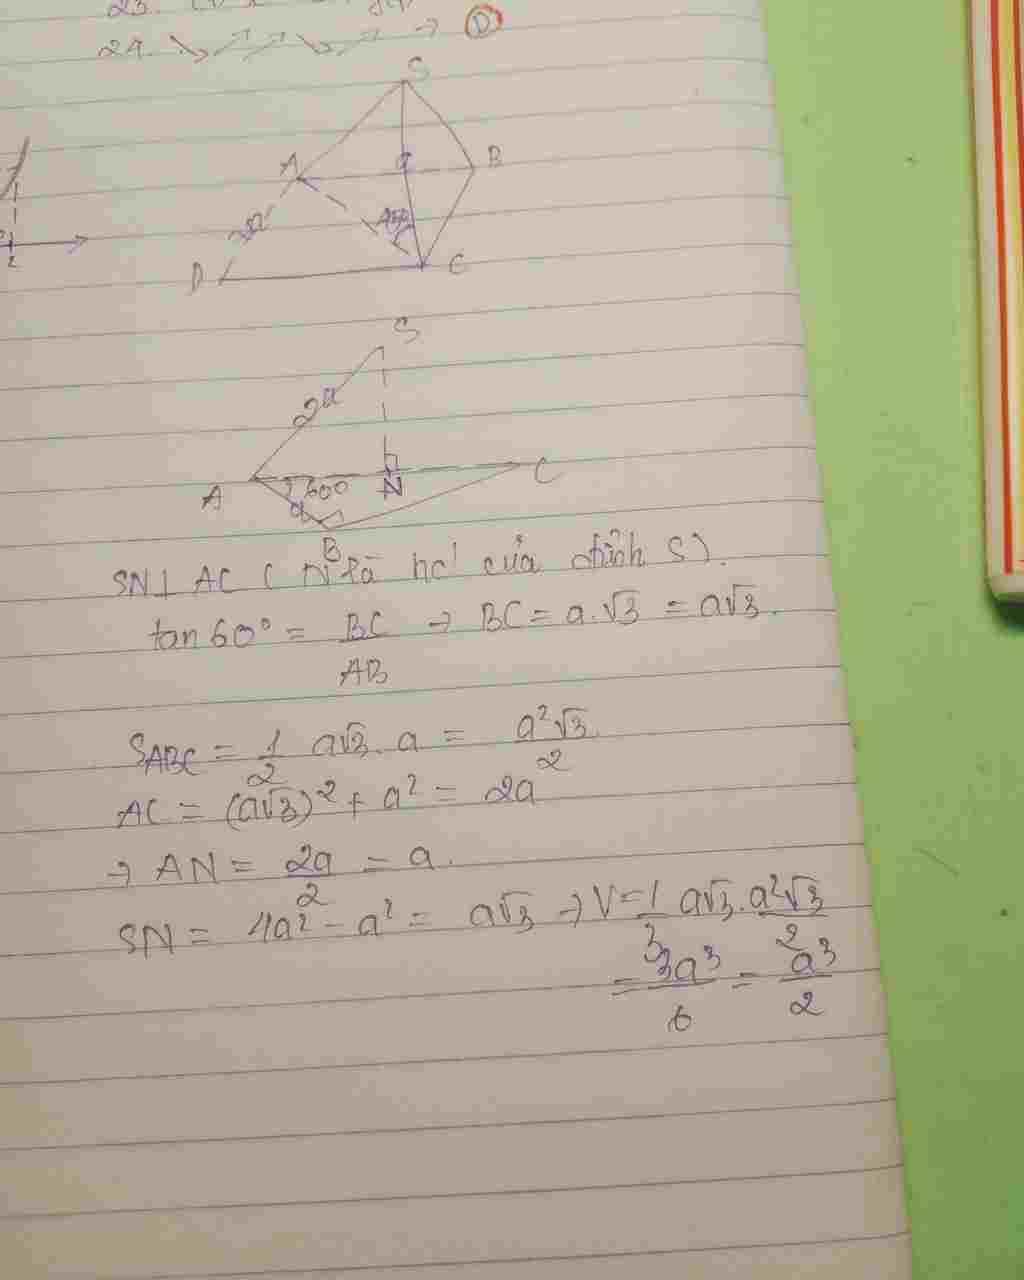 24. → D
S
A
B
a
2a
45°
D
C
S
2a
A
60°
N
C
a
B
SN ⊥ AC ( N là hc' của đỉnh S).
tan 60° = BC/AB → BC = a.√3 = a√3.
S_ABC = 1/2 a√3. a = a²√3/2
AC = (a√3)² + a² = 2a
→ AN = 2a/2 = a.
SN = 4a² - a² = a√3 → V = 1/3 a√3. a²√3/2
= 3a³/6 = a³/2